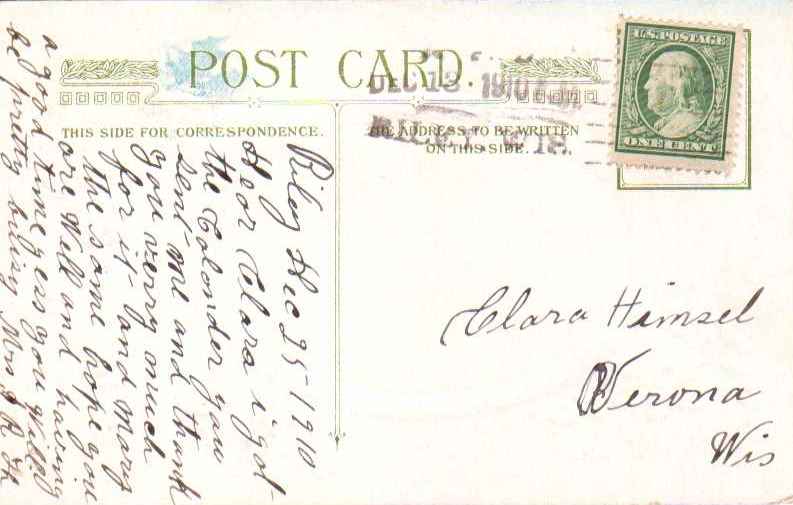 POST CARD.
THIS SIDE FOR CORRESPONDENCE.
THE ADDRESS TO BE WRITTEN
ON THIS SIDE.
DEC 13 1910
RILEY, WIS.
U.S. POSTAGE
ONE CENT
Riley Dec 25-1910
Dear Clara i got
the Calonder you
sent me and thank
you verry much
for it- and mary
the same hope you
are Well and having
a good time
be pretty buisy Mrs J R
Clara Himsel
Verona
Wis